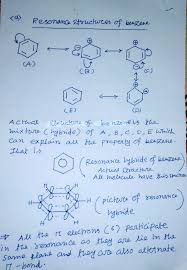 (a) Resonance structures of benzene
(A)
(B)
(C)
(E)
(D)
Actual structure of benzene is the
mixture (hybride) of A, B, C, D, E which
can explain all the property of benzene.
That is
(Resonance hybride of benzene
Actual structure
All molecule have this structure
H
H
H
H
H
H
(picture of resonance
hybride)
⇒ All the π electrons (6) participate
in the resonance as they are lie in the
same plane and they are also alternate
π-bond.